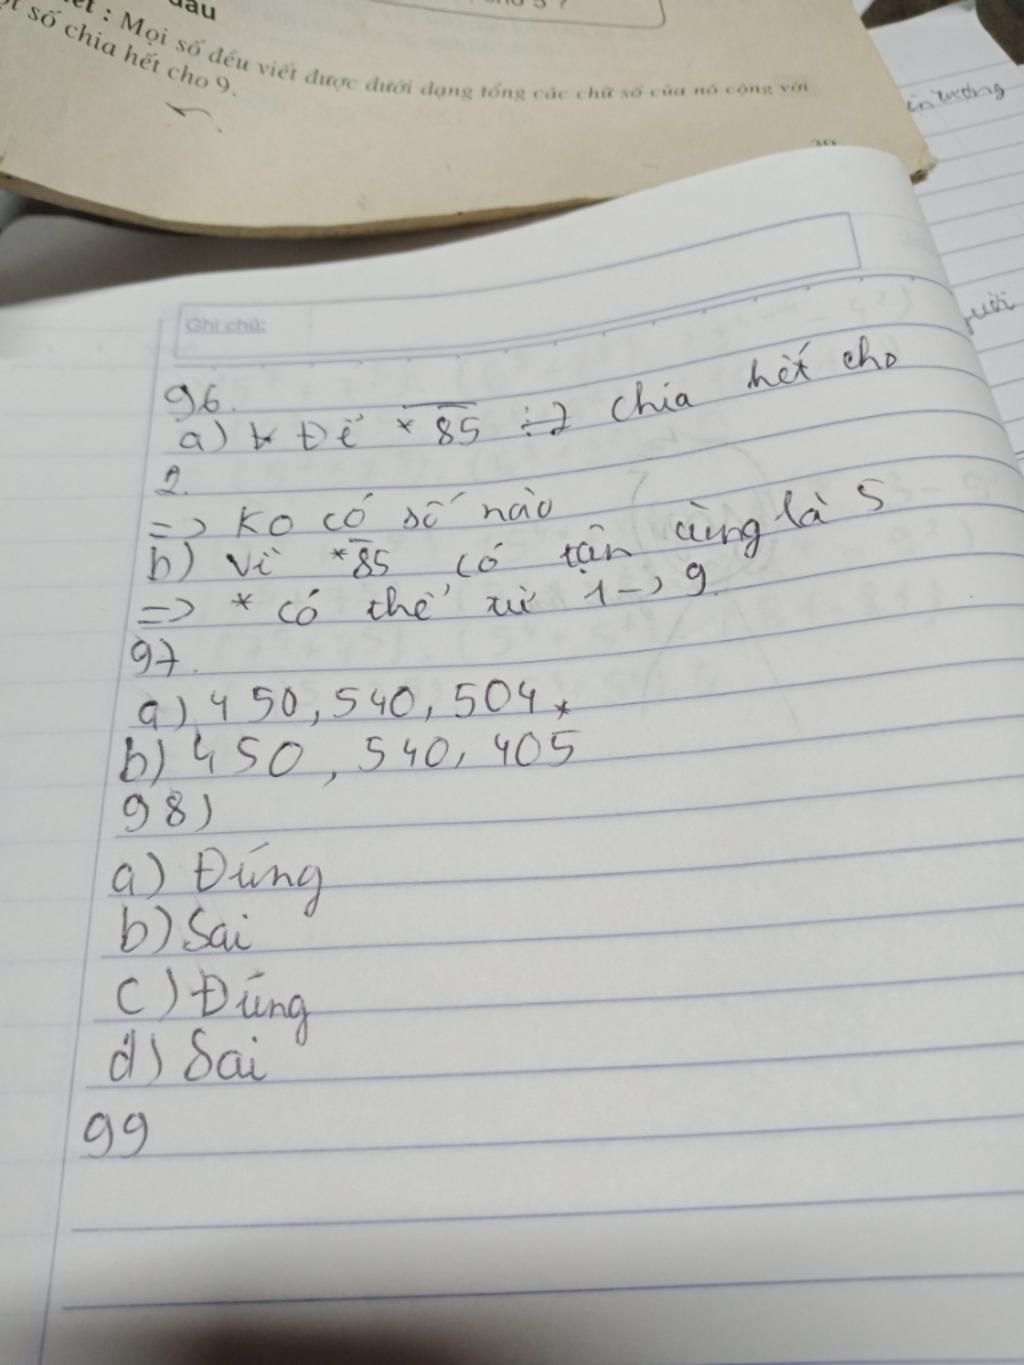 đầu
: Mọi số đều viết được dưới dạng tổng các chữ số của nó cộng với
số chia hết cho 9.
Ghi chú:
96.
a) Để *85 chia hết cho
2.
=> Ko có số nào
b) Vì *85 có tận cùng là 5
=> * có thể từ 1 -> 9
97.
a) 450, 540, 504
b) 450, 540, 405
98)
a) Đúng
b) Sai
c) Đúng
d) Sai
99